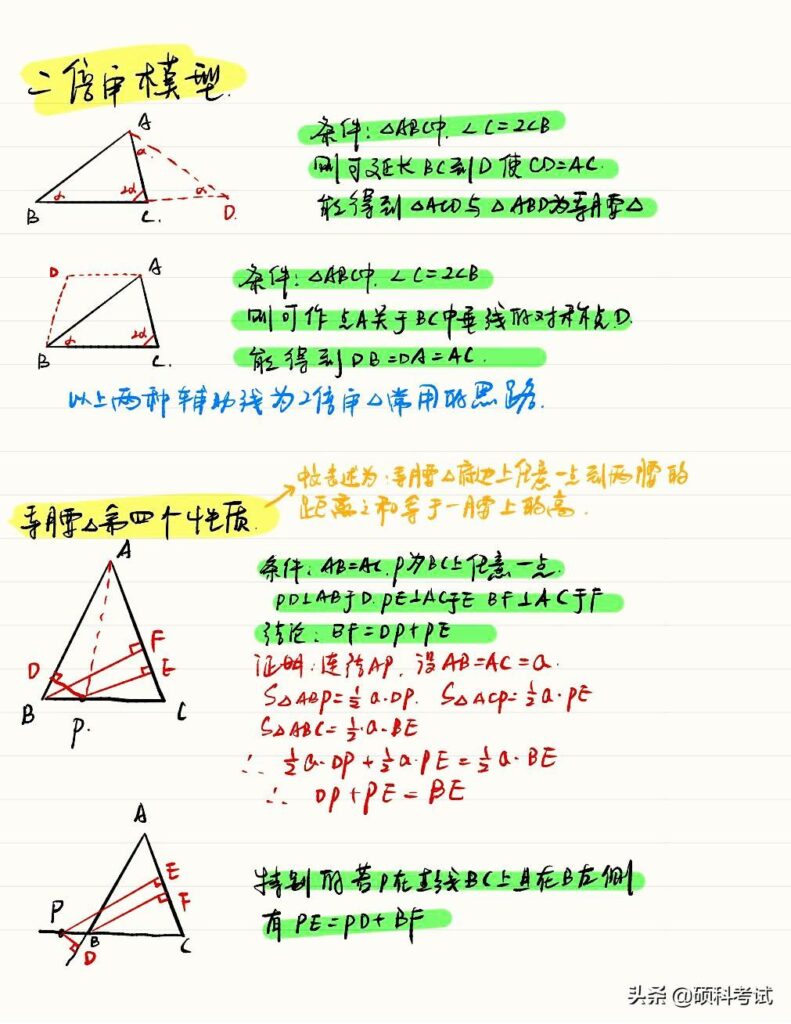 二倍角模型.
A
α
α
2α
α
B
C.
D.
条件: △ABC中. ∠C=2∠B
则可延长BC到D使CD=AC.
能得到△ACD与△ABD为等腰△
D
A
α
2α
B
C.
条件: △ABC中. ∠C=2∠B
则可作点A关于BC中垂线的对称点D.
能得到DB=DA=AC.
以上两种辅助线为2倍角△常用的思路.
等腰△第四个性质.
故表述为: 等腰△底边上任意一点到两腰的
距离之和等于一腰上的高.
A
D
F
E
B
P.
C
条件: AB=AC. P为BC上任意一点.
PD⊥AB于D. PE⊥AC于E BF⊥AC于F
结论: BF=DP+PE
证明: 连结AP, 设AB=AC=a.
S△ABP=½a·DP. S△ACP=½a·PE
S△ABC=½·a·BE
∴ ½a·DP+½a·PE=½a·BE
∴ DP+PE=BE
A
E
F
P
B
D
C
特别的若P在直线BC上且在B左侧
有PE=PD+BF
头条 @硕科考试